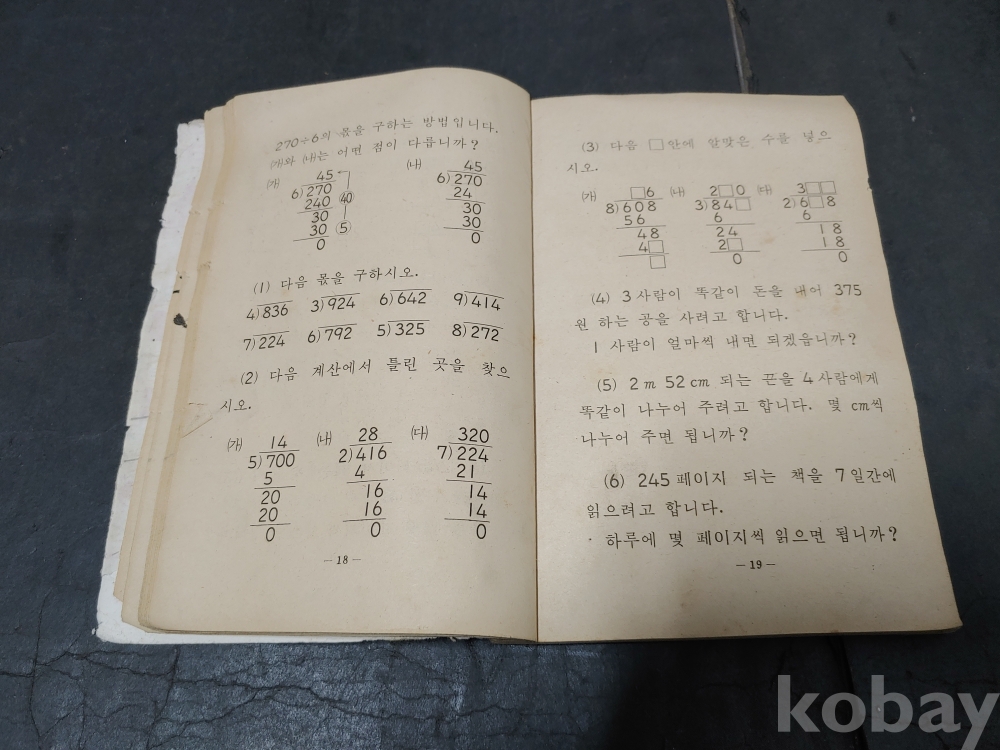 270÷6의 몫을 구하는 방법입니다.
㈎와 ㈏는 어떤 점이 다릅니까?
㈎ ㈏
45 45
6)270 6)270
240 ㊵ 24
30 30
30 ⑤ 30
0 0
(1) 다음 몫을 구하시오.
4)836 3)924 6)642 9)414
7)224 6)792 5)325 8)272
(2) 다음 계산에서 틀린 곳을 찾으
시오.
㈎ 14 ㈏ 28 ㈐ 320
5)700 2)416 7)224
5 4 21
20 16 14
20 16 14
0 0 0
— 18 —
(3) 다음 □안에 알맞은 수를 넣으
시오.
㈎ □6 ㈏ 2□0 ㈐ 3□□
8)608 3)84□ 2)6□8
56 6 6
48 24 18
4□ 2□ 18
□ 0 0
(4) 3사람이 똑같이 돈을 내어 375
원 하는 공을 사려고 합니다.
1 사람이 얼마씩 내면 되겠읍니까?
(5) 2m 52cm 되는 끈을 4사람에게
똑같이 나누어 주려고 합니다. 몇 cm씩
나누어 주면 됩니까?
(6) 245페이지 되는 책을 7일간에
읽으려고 합니다.
하루에 몇 페이지씩 읽으면 됩니까?
— 19 —
kobay